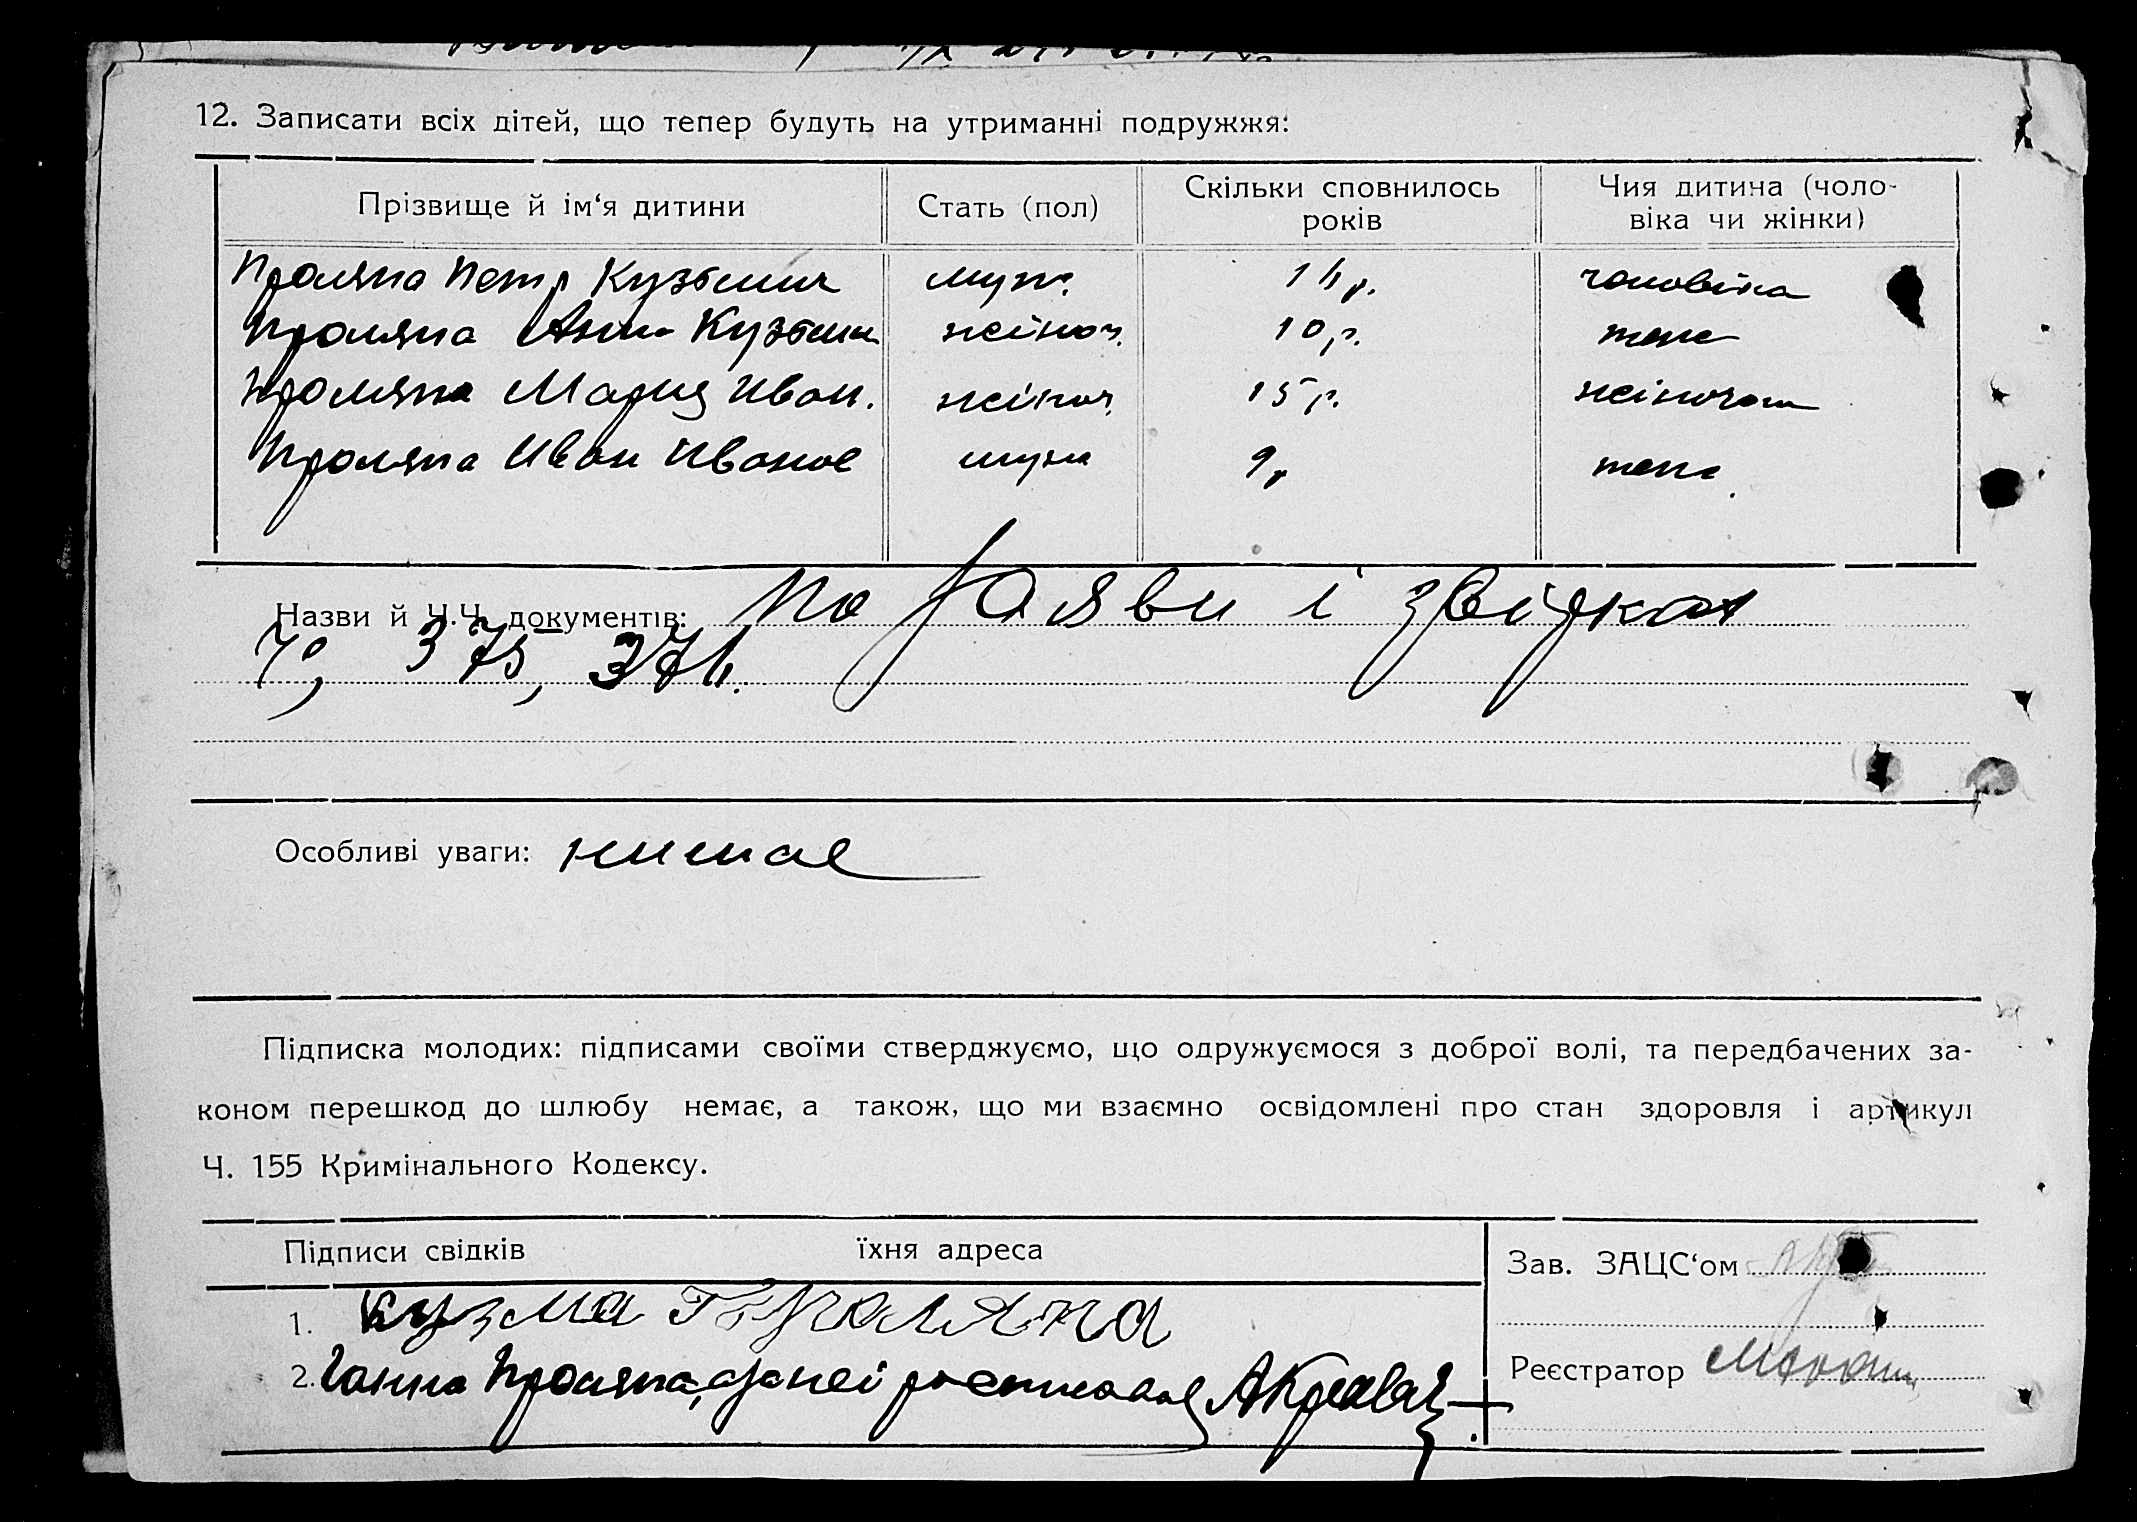 12. Записати всіх дітей, що тепер будуть на утриманні подружжя:
Прізвище й ім‘я дитини Стать (пол) Скільки сповнилось років Чия дитина (чоловіка чи жінки)
Проляпа Петр Кузьмич муж. 14 р. чоловіка
Проляпа Анна Кузьми 10 р. тоже
Проляпа Мария Иван. жіноч. 15 р.
Проляпа Иван Иванов мужа 9 р тоже
Назви й Ч.Ч. документів: По заяви і звідках
Ч°, 375, 374.
Особливі уваги: нимає
Підписка молодих: підписами своїми стверджуємо, що одружуємося з доброї волі, та передбачених за-
коном перешкод до шлюбу немає, а також, що ми взаємно освідомлені про стан здоровля і артикул
Ч. 155 Кримінального Кодексу.
Підписи свідків їхня адреса
Зав. ЗАЦС‘ом
1. Кузма Проляпа
Реєстратор
2. Ганна Проляпа,